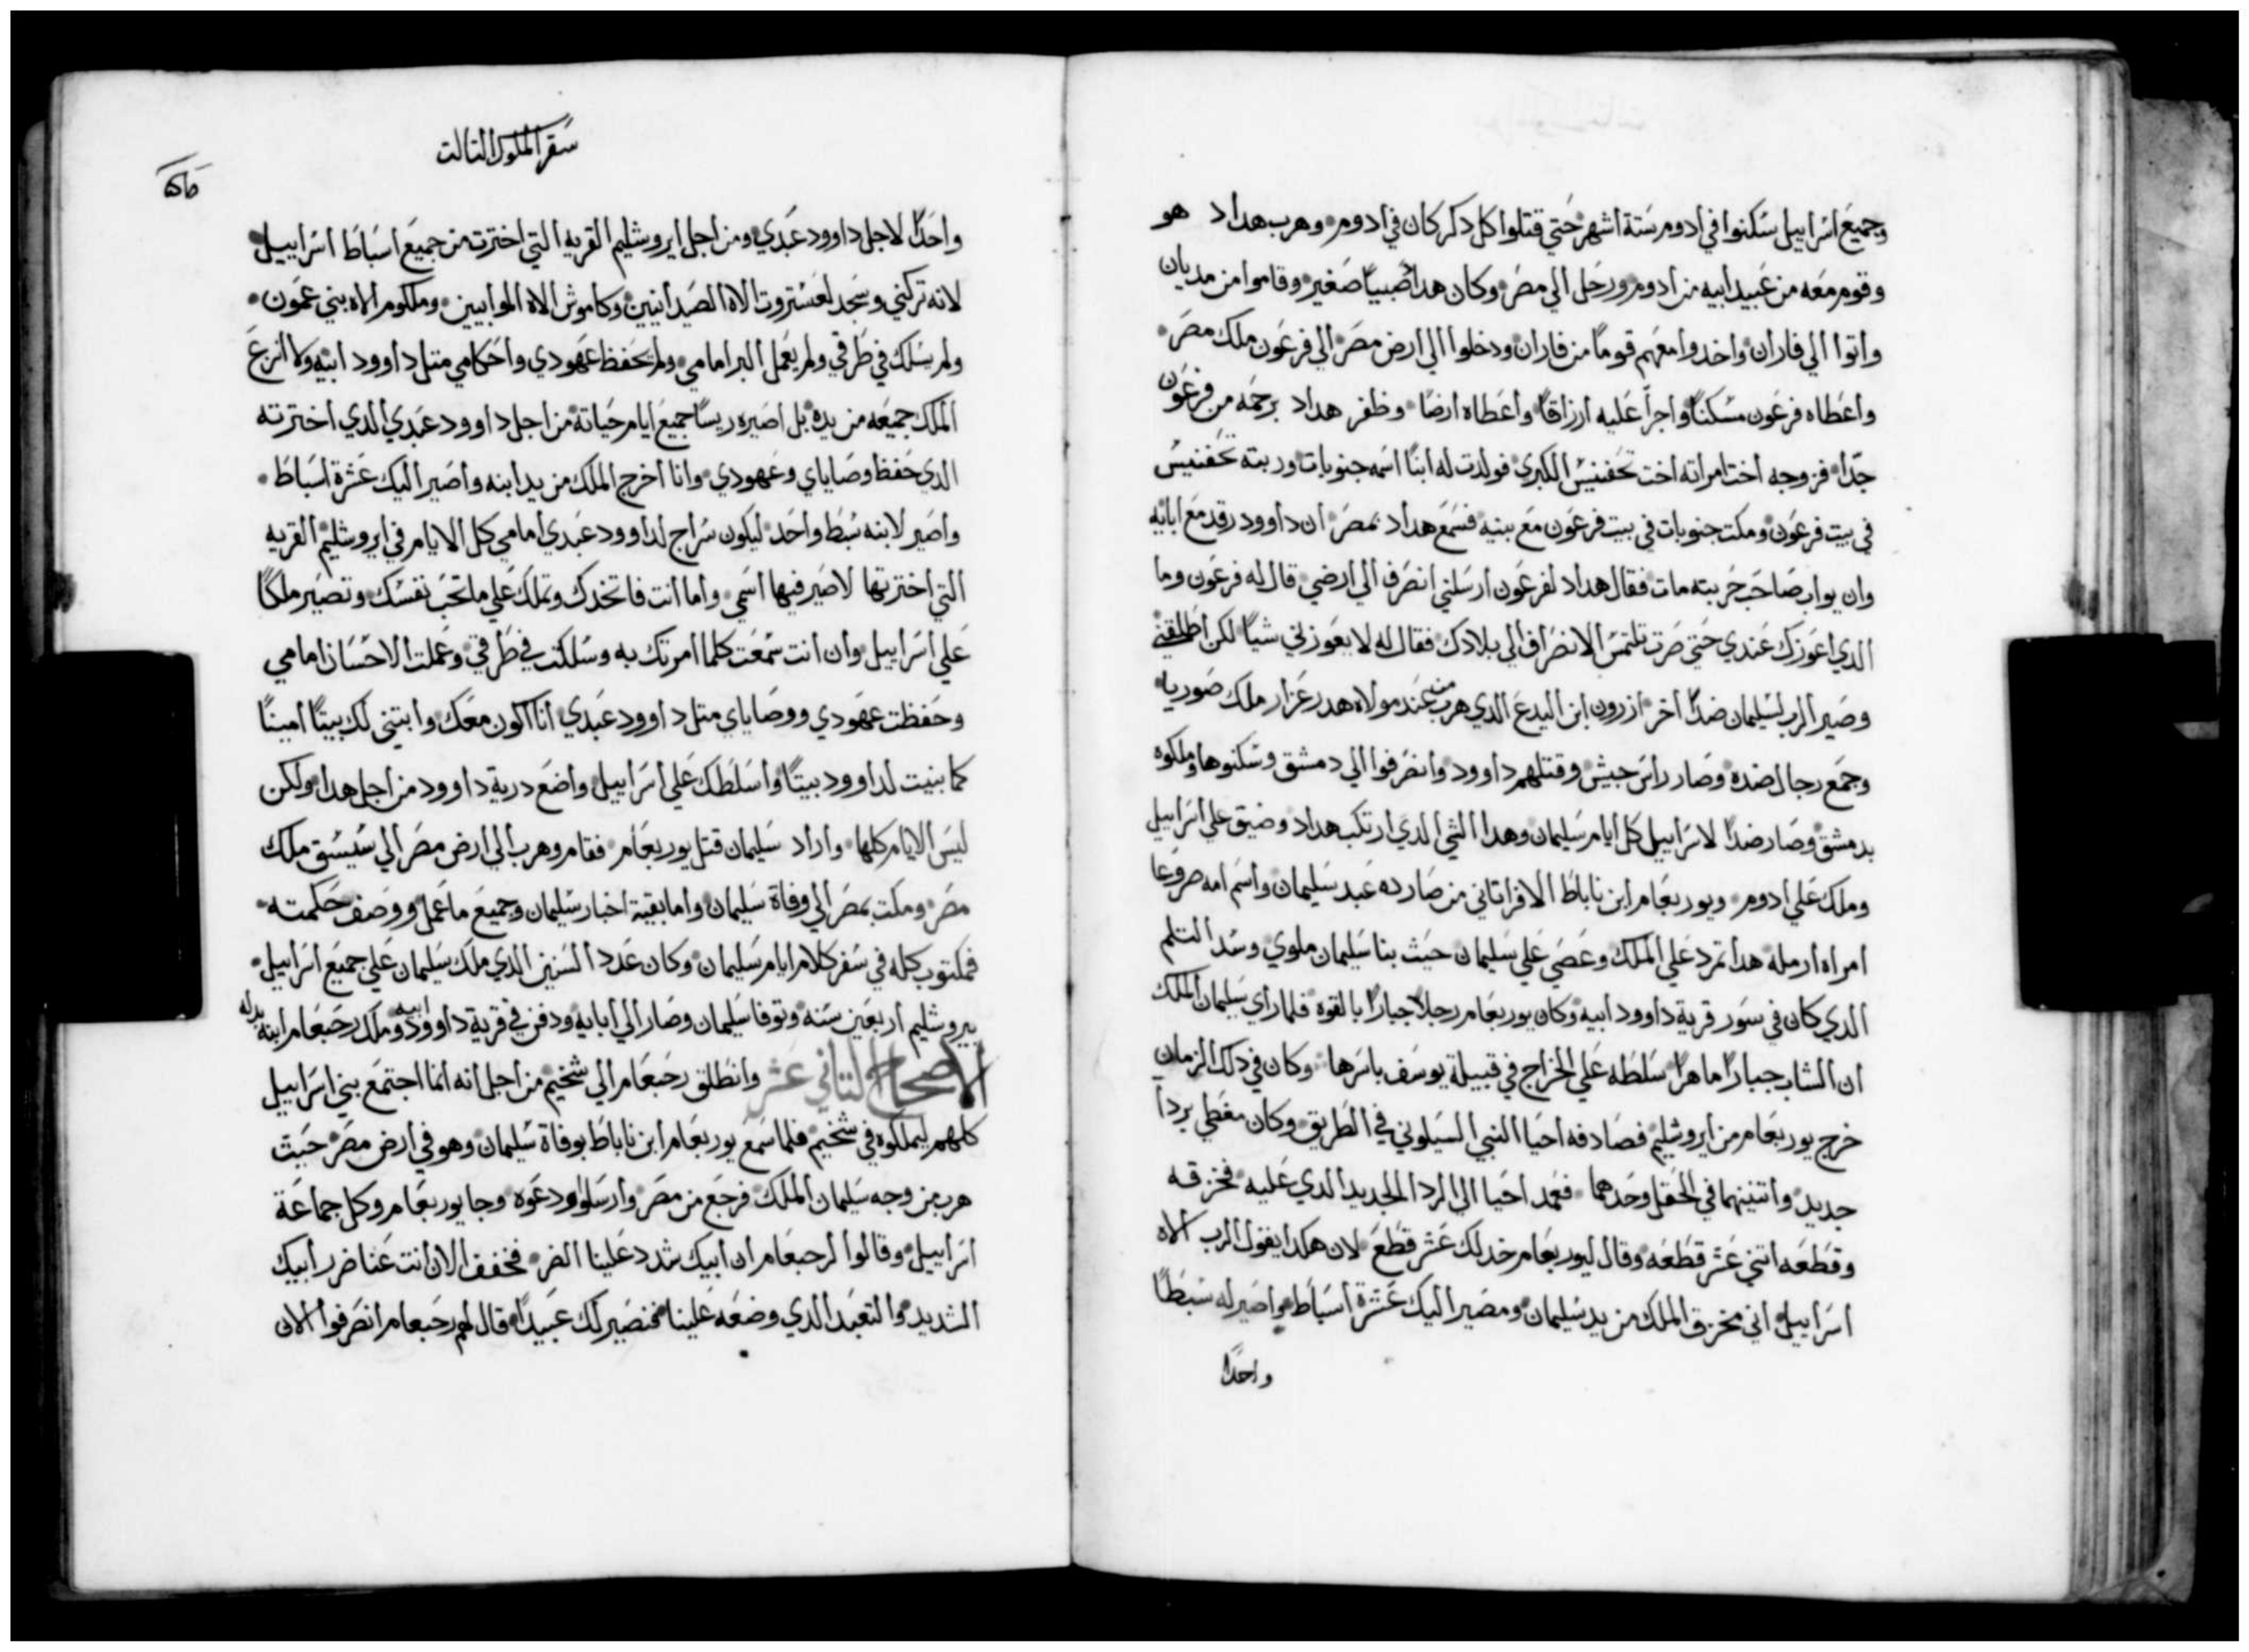 وجميع اسراييل سكنوا في ادوم ستة اشهر حتي قتلوا كل دكر كان في ادوم وهرب هداد هو
وقوم معه من عبيد ابيه من ادوم ورحل الي مصر وكان هداد صبيا صغير وقاموا من مديان
واتوا الي فاران واخدوا معهم قوما من فاران ودخلوا الي ارض مصر الي فرعون ملك مصر
واعطاه فرعون مسكنا واجرا عليه ارزاقا واعطاه ارضا وظفر هداد برحمه من فرعون
جدا فزوجه اخت امراته اخت تحفنيس الكبري فولدت له ابنا اسمه جنوبات وربته تحفنيس
في بيت فرعون ومكت جنوبات في بيت فرعون مع بنيه فسمع هداد بمصر ان داوود رقد مع ابايه
وان يواب صاحب حربته مات فقال هداد لفرعون ارسلني انصرف الي ارضي قال له فرعون وما
الدي اعوزك عندي حتي صرت تلتمس الانصراف الي بلادك فقال له لا يعوزني شيا لكن اطلقني
وصير الرب لسليمان ضدا اخر ازرون ابن اليدع الدي هرب من عند مولاه هدرعزار ملك صوريا
وجمع رجال ضده وصار راس جيش وقتلهم داوود وانصرفوا الي دمشق وسكنوها وملكوه
بدمشق وصار ضدا لاسراييل كل ايام سليمان وهدا الشي الدي ارتكب هداد وضيق علي اسراييل
وملك علي ادوم ويوربعام ابن ناباط الافراتاني من صارده عبد سليمان واسم امه صروعا
امراه ارمله هدا تمرد علي الملك وعصي علي سليمان حيت بنا سليمان ملوي وسد التلم
الدي كان في سور قرية داوود ابيه وكان يوربعام رجلا جبارا بالقوه فلما راي سليمان الملك
ان الشاب جبارا ماهرا سلطه علي الخراج في قبيلة يوسف باسرها وكان في دلك الزمان
خرج يوربعام من ايروشليم فصادفه احيا النبي السيلوني في الطريق وكان مغطي بردا
جديد واتنينهما في الحقل وحدهما فعمد احيا الي الردا الجديد الدي عليه فخزقه
وقطعه اتني عشر قطعه وقال ليوربعام خد لك عشر قطع لان هكدا يقول الرب الاه
اسراييل اني مخزق الملك من يد سليمان ومصير اليك عشرة اسباط واصير له سبطا
واحدا
سفر الملوك التالت
واحدا لاجل داوود عبدي ومن اجل ايروشليم القريه التي اخترت من جميع اسباط اسراييل
لانه تركني وسجد لعستروت الاه الصيدانيين وكاموش الاه الموابيين وملكوم الاه بني عمون
ولم يسلك في طرقي ولم يعمل البر امامي ولم يحفظ عهودي واحكامي متل داوود ابيه ولا انزع
الملك جميعه من يده بل اصيره ريسا جميع ايام حياته من اجل داوود عبدي الدي اخترته
الدي حفظ وصاياي وعهودي وانا اخرج الملك من يد ابنه واصير اليك عشرة اسباط
واصير لابنه سبط واحد ليكون سراج لداوود عبدي امامي كل الايام في ايروشليم القريه
التي اخترتها لاصير فيها اسمي واما انت فاتخدك وتملك علي ما تحب نفسك وتصير ملكا
علي اسراييل وان انت سمعت كلما امرتك به وسلكت في طرقي وعملت الاحسان امامي
وحفظت عهودي ووصاياي متل داوود عبدي انا اكون معك وابتني لك بيتا امينا
كما بنيت لداوود بيتا واسلطك علي اسراييل واضع درية داوود من اجل هدا ولكن
ليس الايام كلها واراد سليمان قتل يوربعام فقام وهرب الي ارض مصر الي سيسق ملك
مصر ومكت بمصر الي وفاة سليمان واما بقية اخبار سليمان وجميع ما عمل ووصف حكمته
فمكتوب كله في سفر كلام ايام سليمان وكان عدد السنين الدي ملك سليمان علي جميع اسراييل
بيروشليم اربعين سنه وتوفا سليمان وصار الي ابايه ودفن في قرية داوود ابيه وملك رحبعام ابنه بدله
الاصحاح التاني عشر وانطلق رحبعام الي شخيم من اجل انه انما اجتمع بني اسراييل
كلهم ليملكوه في شخيم فلما سمع يوربعام ابن ناباط بوفاة سليمان وهو في ارض مصر حيت
هرب من وجه سليمان الملك فرجع من مصر وارسلوا ودعوه وجا يوربعام وكل جماعة
اسراييل وقالوا لرحبعام ان ابيك شدد علينا الضر فخفف الان انت عنا ضر ابيك
الشديد والتعبد الدي وضعه علينا فنصير لك عبيدا قال لهم رحبعام انصرفوا الان